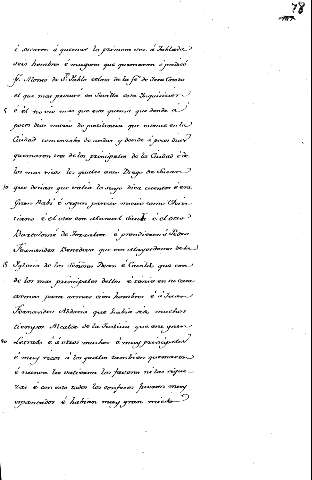 78
é sacaron á quemar la primera vez á Tablada
seis hombres é mugeres que quemaron é predicó
fr. Alonso de Sn. Pablo zeloso de la fé de Jesu Cristo
el que mas procuró en Sevilla esta Inquisicion
5 é él no vió mas que esta quema que donde á
pocos dias murió de pestilencia que estonces en la
Ciudad comenzaba de andar y donde á pocos dias
quemaron tres de los principales de la Ciudad é de
los mas ricos los quales eran Diego de Susan
10 que decian que valia lo suyo diez cuentos é era
gran Rabí é segun pareció murió como Christiano
é el otro era Manuel Sauli é el otro
Bartolomé de Torralva é prendieron á Pedro
Fernandez Benedeva que era Mayordomo de la
15 Iglesia de los Señores Dean é Cavildo que era
de los mas principales dellos é tenia en su casa
armas para armar cien hombres é á Juan
Fernandez Abolasia que habia sido muchos
tiempos Alcalde de la Justicia que era gran
20 Letrado é á otros muchos é muy principales
é muy ricos á los quales tambien quemaron
é nunca les valieron los favores ni las riquezas
é con esto todos los confesos fueron muy
espantados é habian muy gran miedo